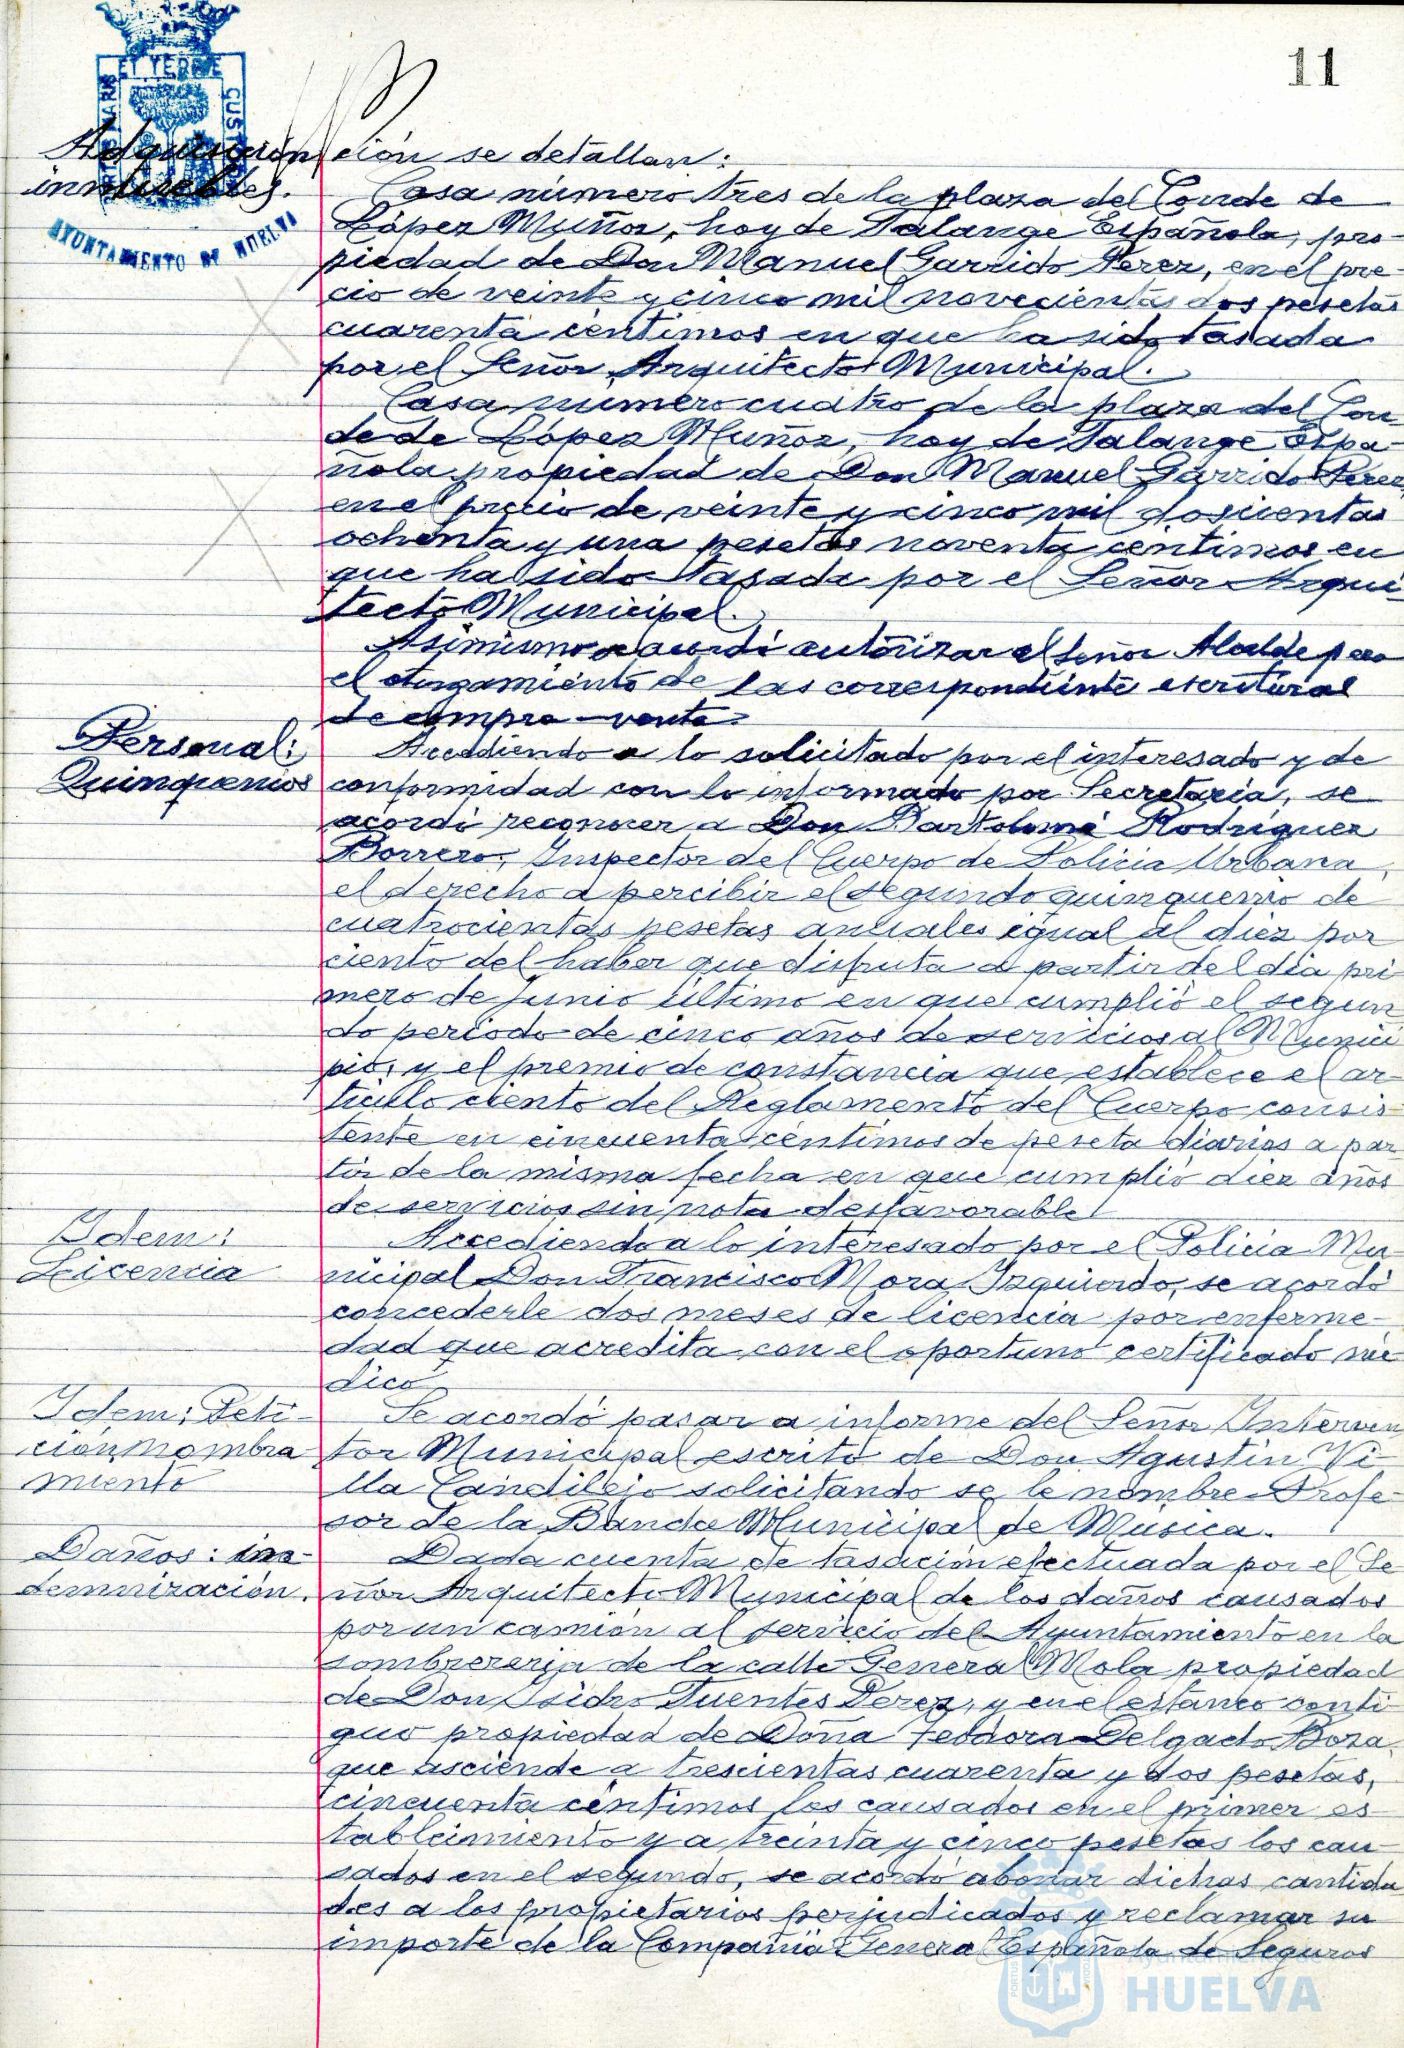 11
ET TERRE
AYUNTAMIENTO DE HUELVA
Adquisición
inmuebles.
ción se detallan:
Casa número tres de la plaza del Conde de
López Muñoz, hoy de Falange Española, pro-
piedad de Don Manuel Garrido Perez, en el pre-
cio de veinte y cinco mil novecientas dos pesetas
cuarenta centimos en que ha sido tasada
por el Señor Arquitecto Municipal.
Casa numero cuatro de la plaza del Con-
de de López Muñoz, hoy de Falange Espa-
ñola propiedad de Don Manuel Garrido Perez,
en el precio de veinte y cinco mil doscientas
ochenta y una pesetas noventa centimos en
que ha sido tasada por el Señor Arqui-
tecto Municipal.
Asimismo se acordó autorizar al Señor Alcalde para
el otorgamiento de las correspondiente escrituras
de compra-venta.
Personal:
Quinquenios
Accediendo a lo solicitado por el interesado y de
conformidad con lo informado por Secretaria, se
acordó reconocer a Don Bartolomé Rodríguez
Borrero, Inspector del Cuerpo de Policia Urbana,
el derecho a percibir el segundo quinquenio de
cuatrocientas pesetas anuales igual al diez por
ciento del haber que disfruta a partir del dia pri-
mero de junio último en que cumplió el segun
do periodo de cinco años de servicios al Munici
pio, y el premio de constancia que establece el ar-
ticulo ciento del Reglamento del Cuerpo consis-
tente en cincuenta centimos de peseta diarios a par
tir de la misma fecha en que cumplió diez años
de servicios sin nota desfavorable
Idem:
Licencia
Accediendo a lo interesado por el Policía Mu-
nicipal Don Francisco Mora Izquierdo, se acordó
concederle dos meses de licencia por enferme-
dad que acredita con el oportuno certificado mé
dico
Idem: Peti-
ción nombra
miento
Se acordó pasar a informe del Señor Interven
tor Municipal escrito de Don Agustín Vi-
lla Candilejo solicitando se le nombre Profe-
sor de la Banda Municipal de Música.
Daños: in-
demnización.
Dada cuenta de tasación efectuada por el Se
ñor Arquitecto Municipal de los daños causados
por un camión al servicio del Ayuntamiento en la
sombrereria de la calle General Mola propiedad
de Don Isidro Fuentes Perez, y en el estanco conti-
guo propiedad de Doña Teodora Delgado Boza,
que asciende a trescientas cuarenta y dos pesetas,
cincuenta céntimos los causados en el primer es-
tablecimiento y a treinta y cinco pesetas los cau-
sados en el segundo, se acordó abonar dichas cantida
des a los propietarios perjudicados y reclamar su
importe de la Compañia General Española de Seguros
Ayuntamiento de
HUELVA